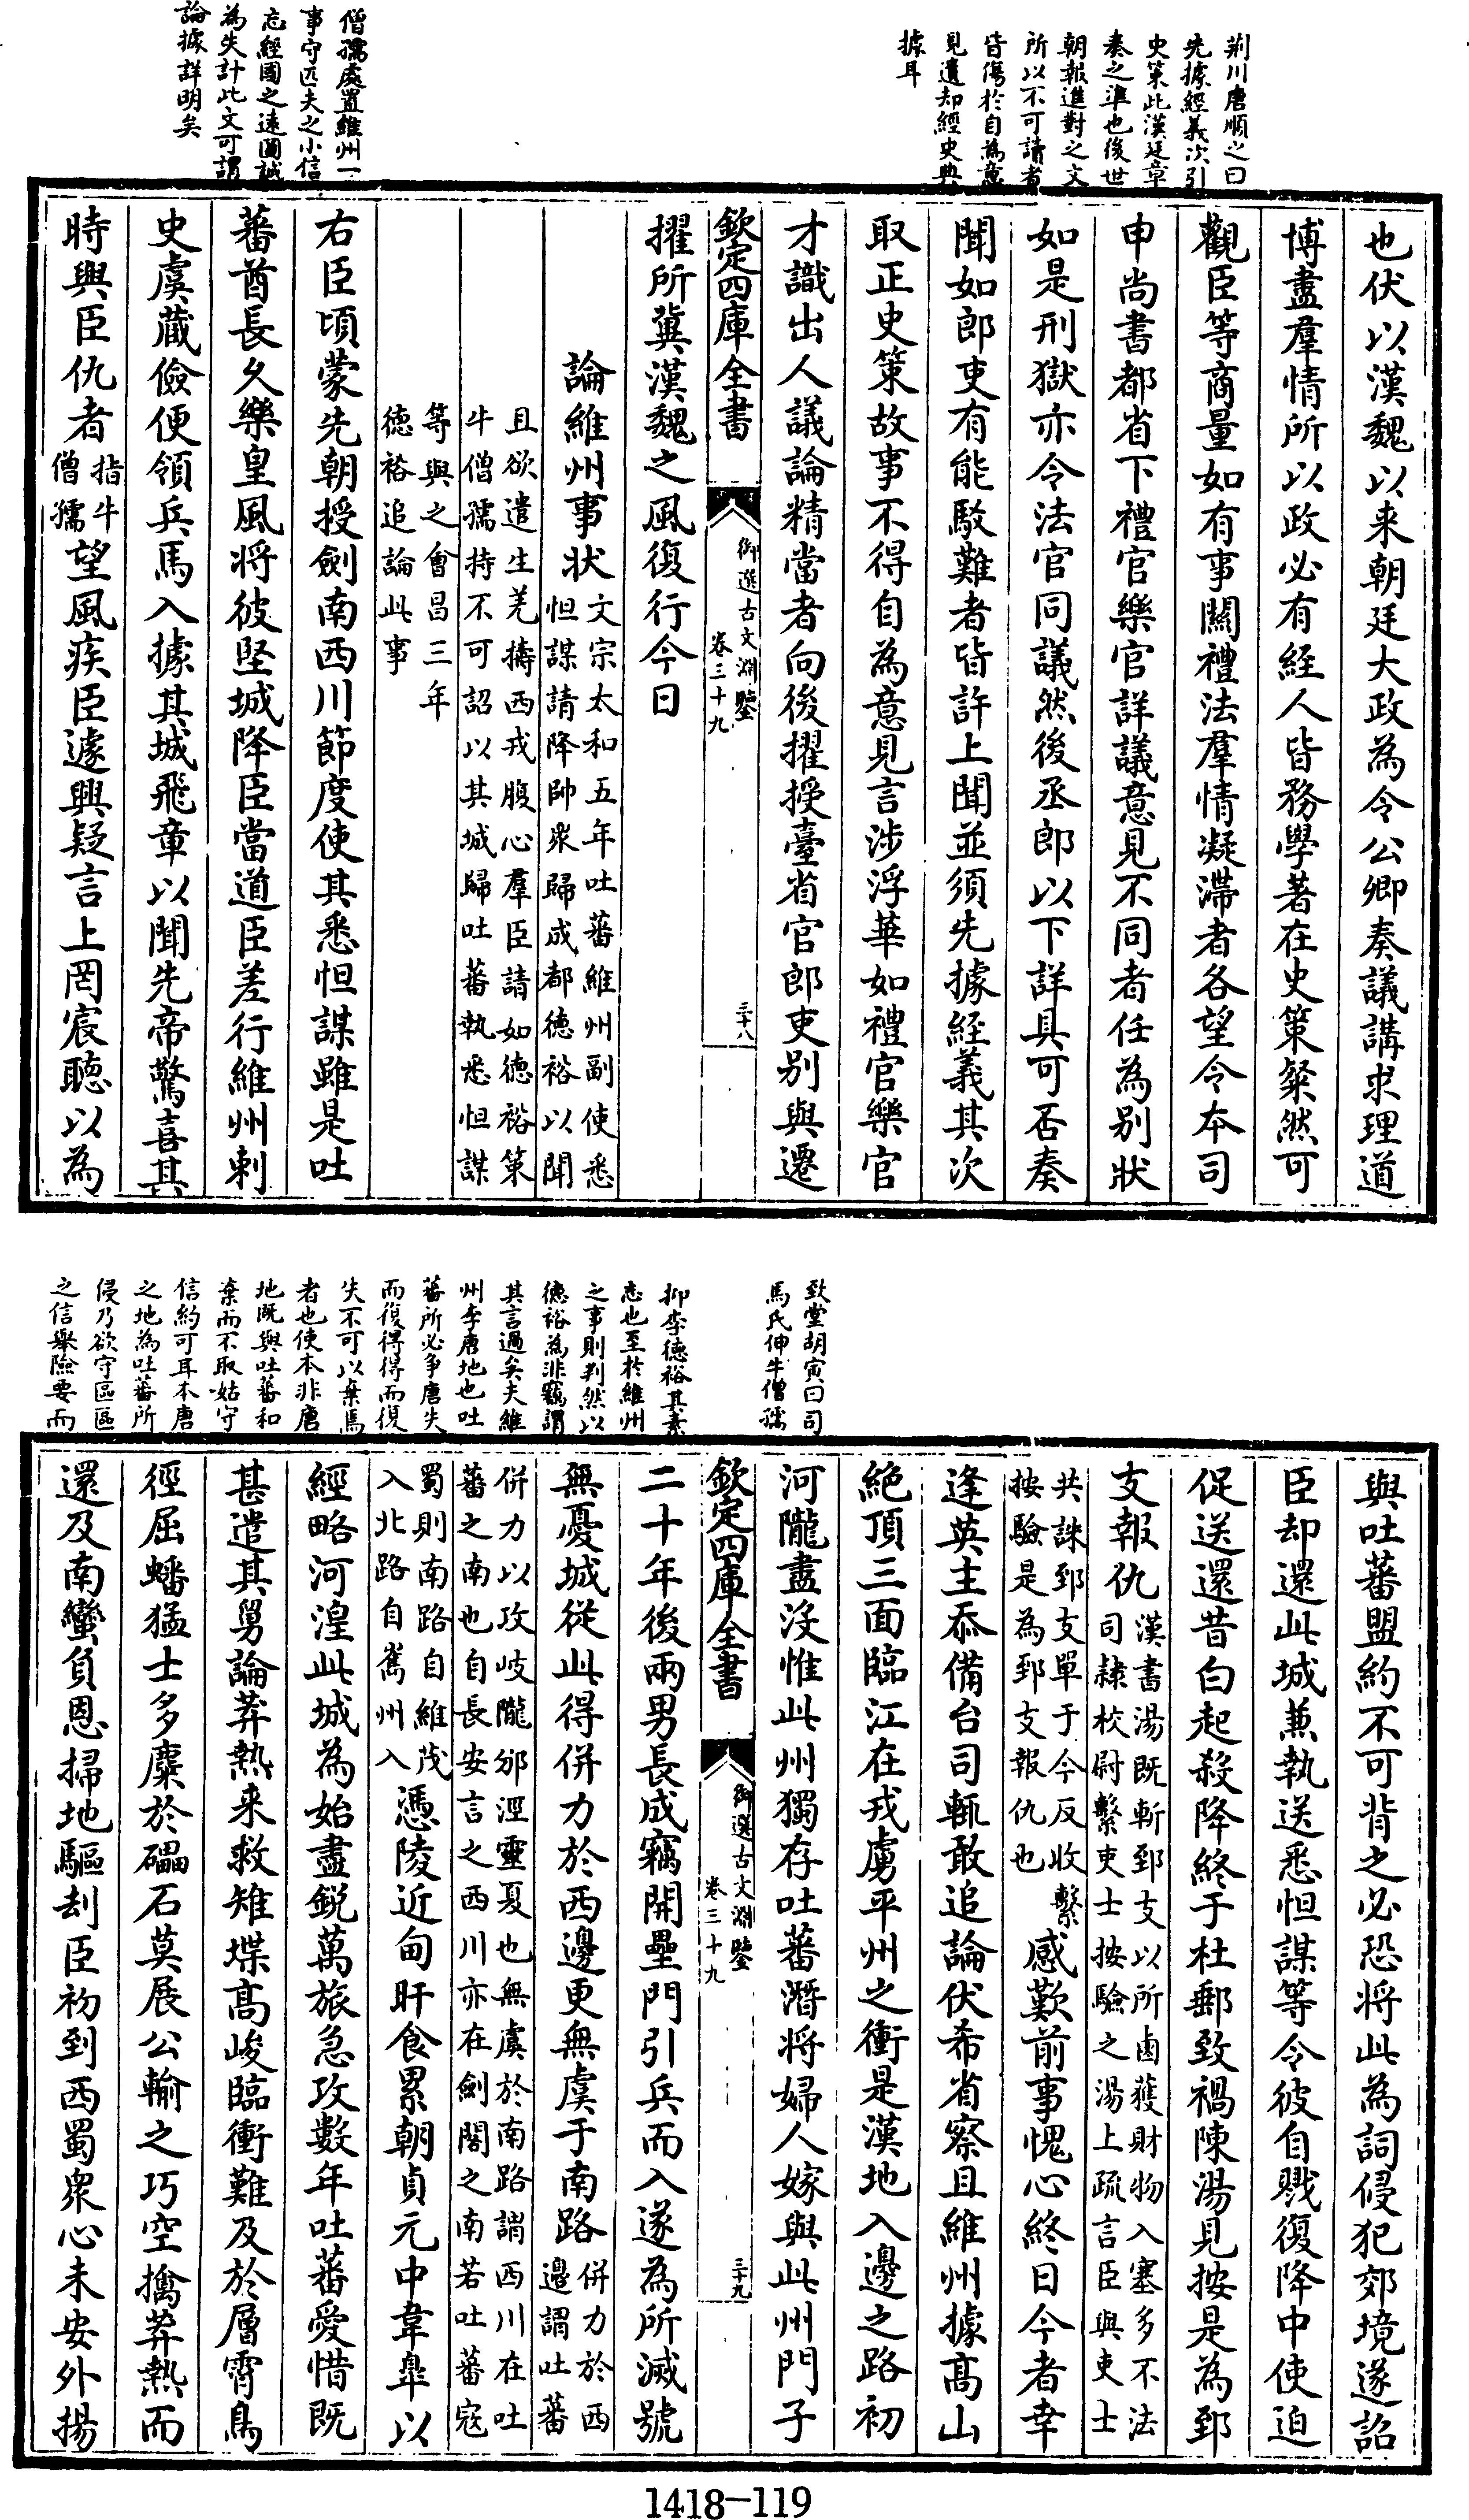 荆川唐順之曰
先據經義次引
史策此漢廷章
奏之準也後世
朝報進對之文
所以不可請者
皆傷於自為意
見遺却經史典
據耳
僧孺處置維州一
事守匹夫之小信
忘經國之遠圖誠
為失計此文可謂
論據詳明矣
也伏以漢魏以来朝廷大政為令公卿奏議講求理道
博盡羣情所以政必有經人皆務學著在史策粲然可
觀臣等商量如有事關禮法羣情凝滯者各望令本司
申尚書都省下禮官樂官詳議意見不同者任為别狀
如是刑獄亦令法官同議然後丞郎以下詳具可否奏
聞如郎吏有能駁難者皆許上聞並須先據經義其次
取正史策故事不得自為意見言涉浮華如禮官樂官
才識出人議論精當者向後擢授臺省官郎吏别與遷
欽定四庫全書
御選古文淵鑒
卷三十九
三十八
擢所冀漢魏之風復行今日
論維州事狀文宗太和五年吐蕃維州副使悉
怛謀請降帥衆歸成都德裕以聞
且欲遣生羌擣西戎腹心羣臣請如德裕策
牛僧孺持不可詔以其城歸吐蕃執悉怛謀
等與之會昌三年
德裕追論此事
右臣頃蒙先朝授劍南西川節度使其悉怛謀雖是吐
蕃酋長久樂皇風将彼堅城降臣當道臣差行維州刺
史虞藏儉便領兵馬入據其城飛章以聞先帝驚喜其
時與臣仇者指牛
僧孺望風疾臣遽興疑言上罔宸聽以為
致堂胡寅曰司
馬氏伸牛僧孺
抑李德裕其素
志也至於維州
之事則判然以
德裕為非竊謂
其言過矣夫維
州李唐地也吐
蕃所必争唐失
而復得得而復
失不可以棄焉
者也使本非唐
地既與吐蕃和
棄而不取姑守
信約可耳本唐
之地為吐蕃所
侵乃欲守區區
之信舉險要而
與吐蕃盟約不可背之必恐将此為詞侵犯郊境遂詔
臣却還此城兼執送悉怛謀等令彼自戮復降中使迫
促送還昔白起殺降終于杜郵致禍陳湯見按是為郅
支報仇漢書湯既斬郅支以所鹵獲財物入塞多不法
司隸校尉繫吏士按驗之湯上疏言臣與吏士
共誅郅支單于今反收繫
按驗是為郅支報仇也感歎前事愧心終日今者幸
逢英主忝備台司輒敢追論伏希省察且維州據髙山
絶頂三面臨江在戎虜平州之衝是漢地入邊之路初
河隴盡没惟此州獨存吐蕃潛将婦人嫁與此州門子
欽定四庫全書
御選古文淵鑒
卷三十九
三十九
二十年後兩男長成竊開壘門引兵而入遂為所滅號
無憂城從此得併力於西邊更無虞于南路併力於西
邊謂吐蕃
併力以攻岐隴邠涇靈夏也無虞於南路謂西川在吐
蕃之南也自長安言之西川亦在劍閣之南若吐蕃寇
蜀則南路自維茂
入北路自嶲州入憑陵近甸旰食累朝貞元中韋臯以
經略河湟此城為始盡鋭萬旅急攻數年吐蕃愛惜既
甚遣其舅論莽熱来救雉堞髙峻臨衝難及於層霄鳥
徑屈蟠猛士多麋於礧石莫展公輸之巧空擒莽熱而
還及南蠻負恩掃地驅刦臣初到西蜀衆心未安外揚
1418—119